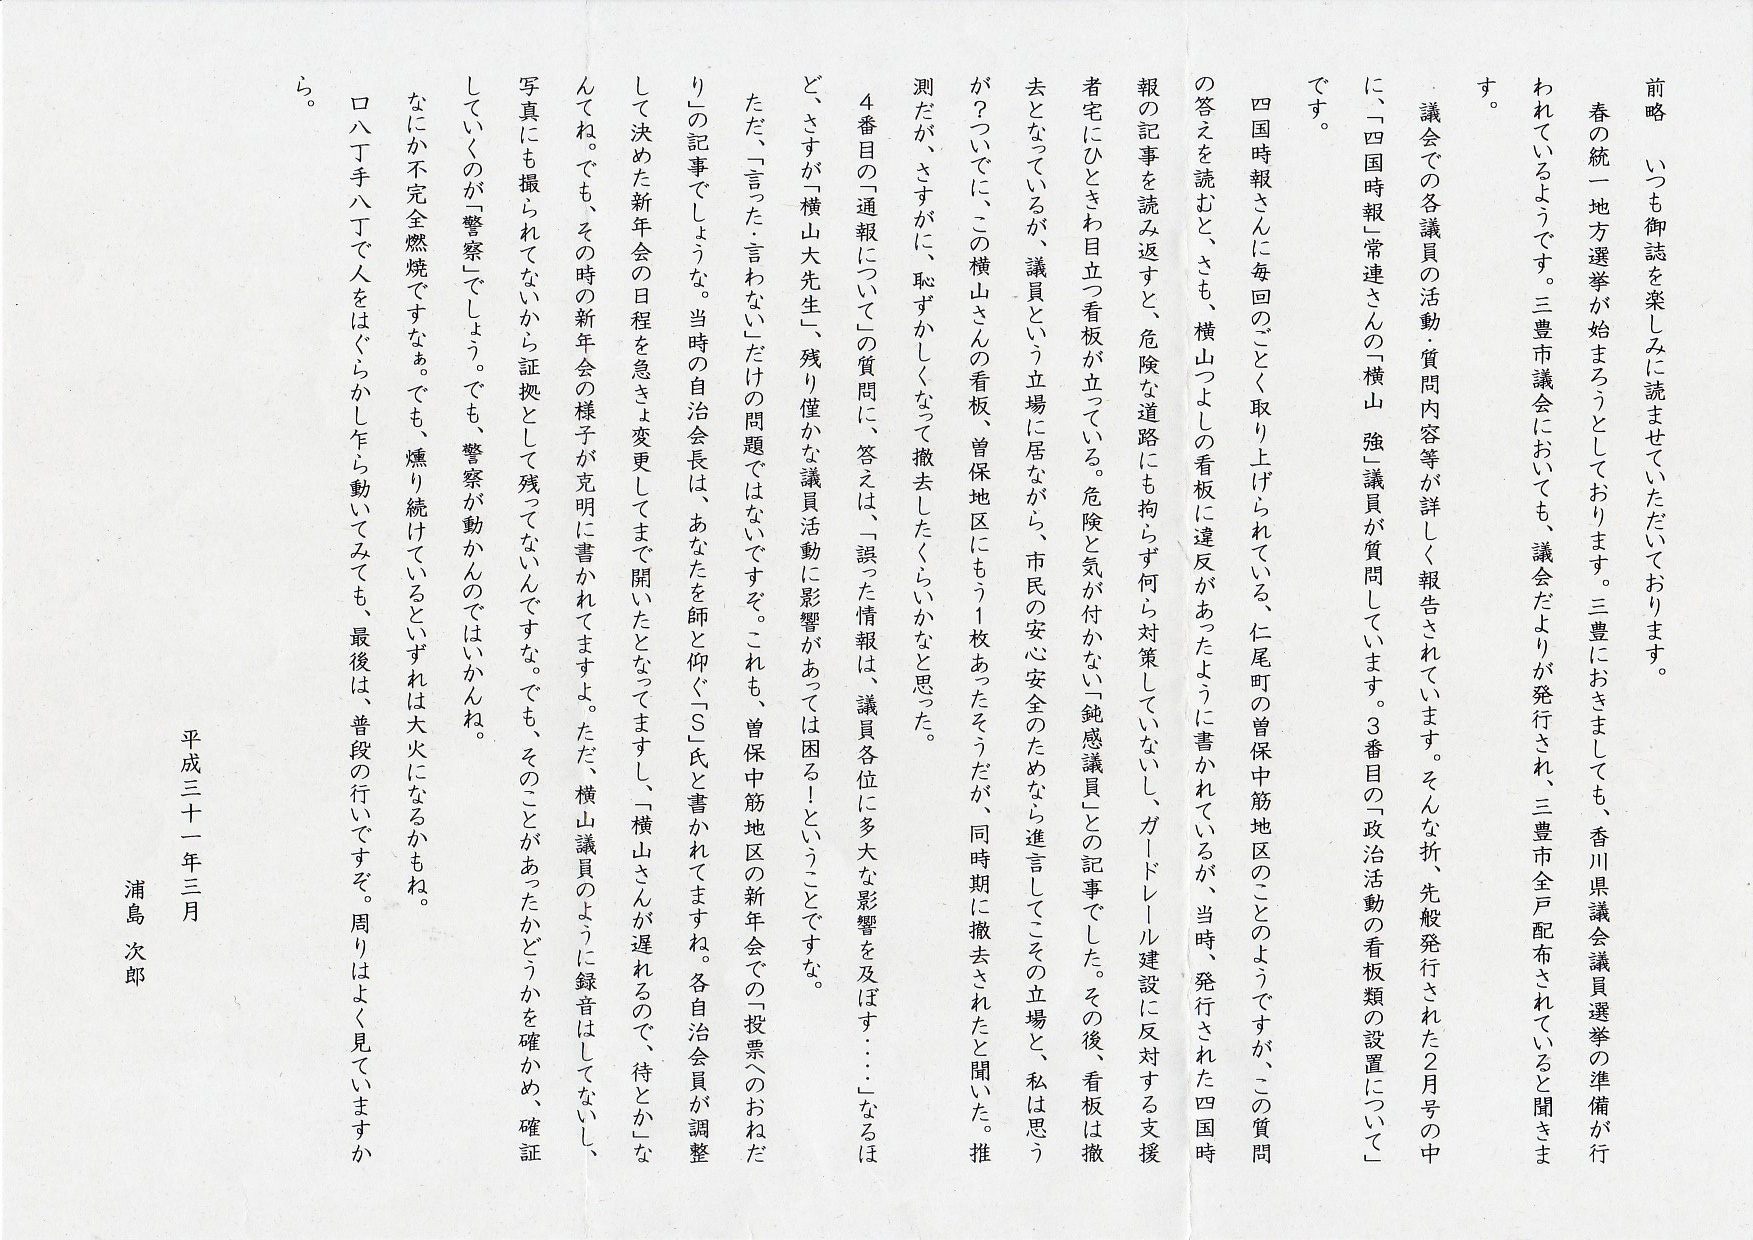 前略　いつも御誌を楽しみに読ませていただいております。
　春の統一地方選挙が始まろうとしております。三豊におきましても、香川県議会議員選挙の準備が行
われているようです。三豊市議会においても、議会だよりが発行され、三豊市全戸配布されていると聞きま
す。
　議会での各議員の活動・質問内容等が詳しく報告されています。そんな折、先般発行された２月号の中
に、「四国時報」常連さんの「横山　強」議員が質問しています。３番目の「政治活動の看板類の設置について」
です。
　四国時報さんに毎回のごとく取り上げられている、仁尾町の曽保中筋地区のことのようですが、この質問
の答えを読むと、さも、横山つよしの看板に違反があったように書かれているが、当時、発行された四国時
報の記事を読み返すと、危険な道路にも拘らず何ら対策していないし、ガードレール建設に反対する支援
者宅にひときわ目立つ看板が立っている。危険と気が付かない「鈍感議員」との記事でした。その後、看板は撤
去となっているが、議員という立場に居ながら、市民の安心安全のためなら進言してこその立場と、私は思う
が？ついでに、この横山さんの看板、曽保地区にもう１枚あったそうだが、同時期に撤去されたと聞いた。推
測だが、さすがに、恥ずかしくなって撤去したくらいかなと思った。
　４番目の「通報について」の質問に、答えは、「誤った情報は、議員各位に多大な影響を及ぼす・・・・」なるほ
ど、さすが「横山大先生」、残り僅かな議員活動に影響があっては困る！ということですな。
　ただ、「言った・言わない」だけの問題ではないですぞ。これも、曽保中筋地区の新年会での「投票へのおねだ
り」の記事でしょうな。当時の自治会長は、あなたを師と仰ぐ「Ｓ」氏と書かれてますね。各自治会員が調整
して決めた新年会の日程を急きょ変更してまで開いたとなってますし、「横山さんが遅れるので、待とか」な
んてね。でも、その時の新年会の様子が克明に書かれてますよ。ただ、横山議員のように録音はしてないし、
写真にも撮られてないから証拠として残ってないんですな。でも、そのことがあったかどうかを確かめ、確証
していくのが「警察」でしょう。でも、警察が動かんのではいかんね。
　なにか不完全燃焼ですなぁ。でも、燻り続けているといずれは大火になるかもね。
　口八丁手八丁で人をはぐらかし乍ら動いてみても、最後は、普段の行いですぞ。周りはよく見ていますか
ら。
平成三十一年三月
浦島 次郎